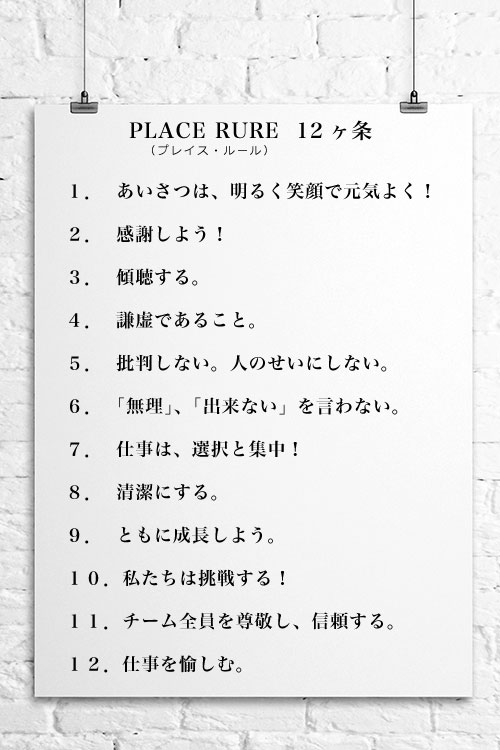 PLACE RURE 12ヶ条
（プレイス・ルール）
１． あいさつは、明るく笑顔で元気よく！
２． 感謝しよう！
３． 傾聴する。
４． 謙虚であること。
５． 批判しない。人のせいにしない。
６． 「無理」、「出来ない」を言わない。
７． 仕事は、選択と集中！
８． 清潔にする。
９． ともに成長しよう。
１０．私たちは挑戦する！
１１．チーム全員を尊敬し、信頼する。
１２．仕事を愉しむ。